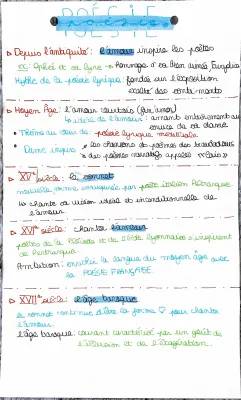 POÉSIE
▷ Depuis l'antiquité : l'amour inspire les poètes
ex: Orphée et sa lyre → hommage à sa bien aimée Eurydice
Mythe de la poésie lyrique : fondée sur l'expression
exaltée des sentiments
▷ Moyen Âge : l'amour courtois (fin'amor)
↳ idéale de l'amour : amant entièrement au
service de sa dame
• Thème au cœur de la poésie lyrique médiévale.
• Dame inspire • les chansons de poèmes des troubadours
• des poèmes narratifs appelés "Lais"
▷ XVe siècle : le sonnet
nouvelle forme poétique par poète italien Pétrarque
↳ chante sa vision idéale et inconditionnelle de
l'amour
▷ XVIe siècle : chanter l'amour
poètes de la Pléiade et de l'école lyonnaise s'inspirent
de Pétrarque
Ambition : enrichir la langue du moyen âge avec
la POÉSIE FRANÇAISE
▷ XVIIe siècle : l'âge baroque
le sonnet continue d'être la forme ♡ pour chanter
l'amour.
l'âge baroque : courant caractérisé par un goût de
l'illusion et de l'exagération.